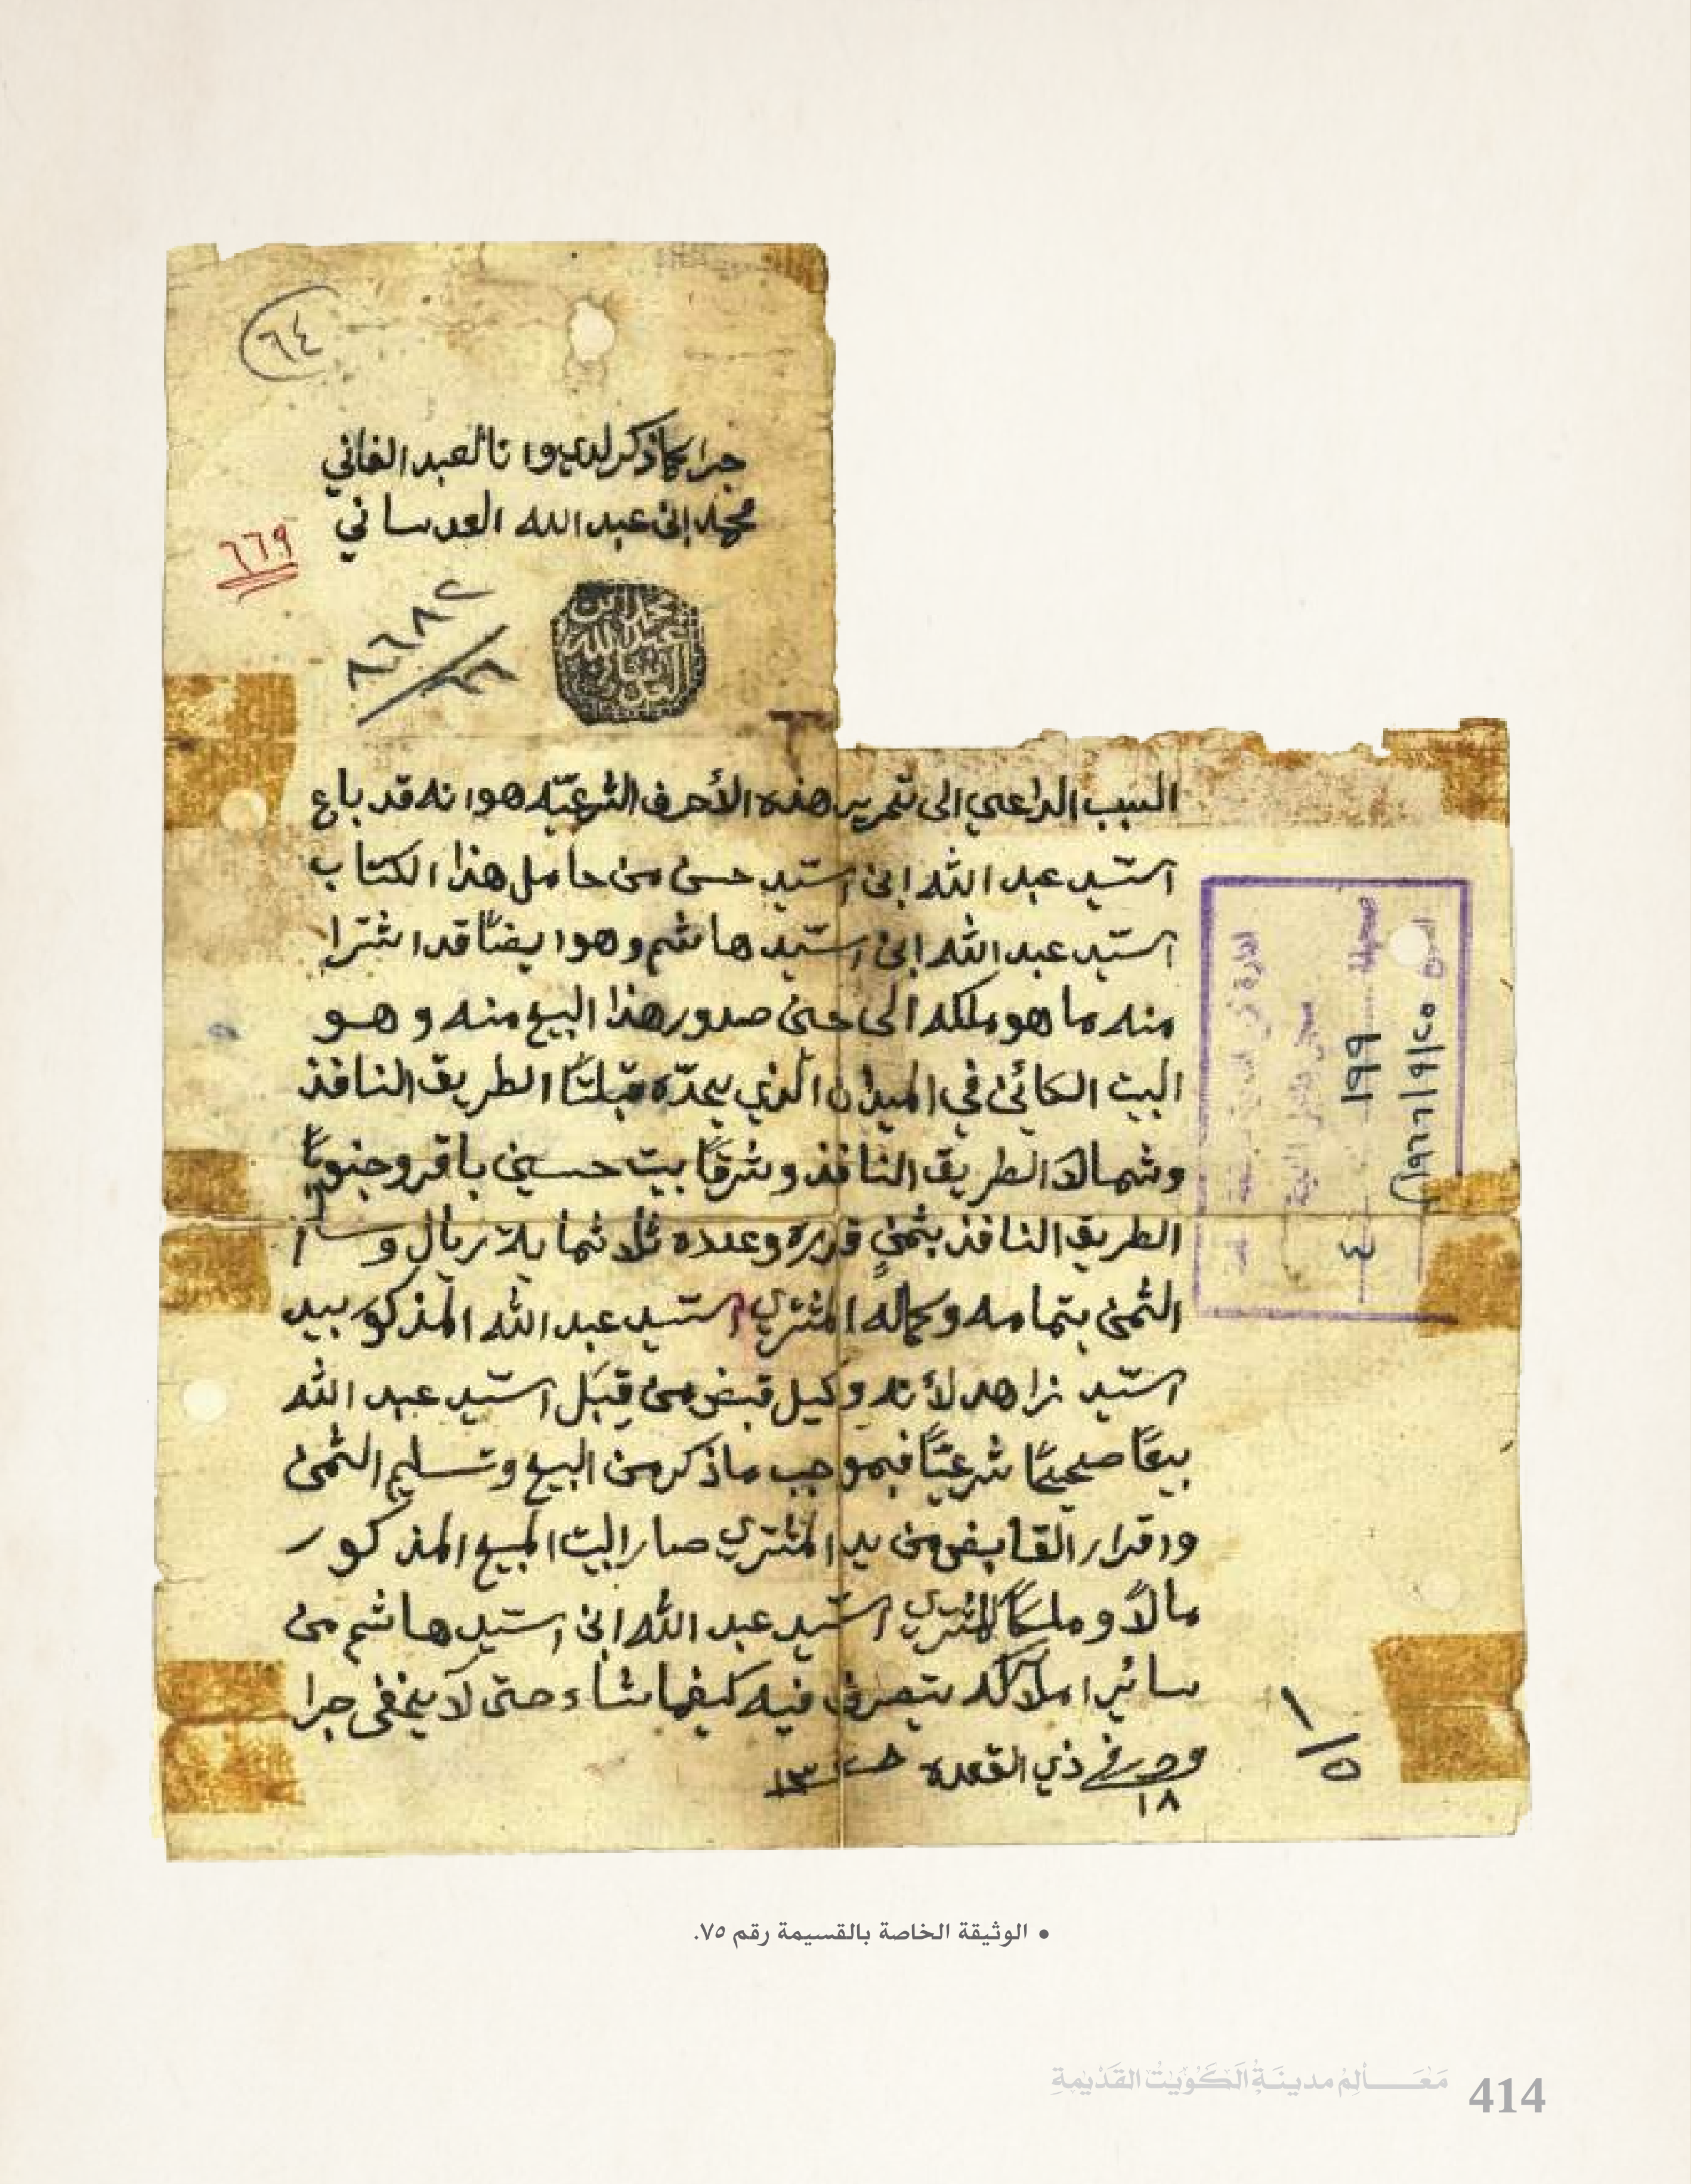 ٦٤
جرا بما ذكر لدي وانا العبد الفاني
محمد ابن عبد الله العدساني
٦٦٩
السبب الداعي الى تحرير هذه الأحرف الشرعيّه هو انه قد باع
السّيد عبد الله ابن السّيد حسن من حامل هذا الكتاب
السّيد عبد الله ابن السّيد هاشم وهو ايضًا قد اشترا
منه ما هو ملكه الى حين صدور هذا البيع منه وهو
البيت الكائن في الميدان الذي يحدّه قبلتًا الطريق النافذ
وشمالاً الطريق النافذ وشرقًا بيت حسين باقر وجنوبًا
الطريق النافذ بثمنٍ قدره وعدده ثلاثماية ريال و
الثمن بتمامه وكماله المشتري السّيد عبد الله المذكور بيد
السّيد زاهد لأنه وكيل قبض من قِبَل السّيد عبد الله
بيعًا صحيحًا شرعيًّا فبموجب ما ذكر من البيع وتسليم الثمن
واقرار القابض من يد المشتري صار البيت المبيع المذكور
مالاً وملكًا للمشتري السّيد عبد الله ابن السّيد هاشم من
سائر املاكه يتصرف فيه كيفما شاء حتى لا يخفى جرا
وحرر في ١٨ ذي القعدة
صحيفة
١٩٩
٤
١٩٦٦/٩/٢٥
١/٥
• الوثيقة الخاصة بالقسيمة رقم ٧٥.
مَعَالِمُ مدينَةِ الكُوَيْت القَدْيمَةِ 414